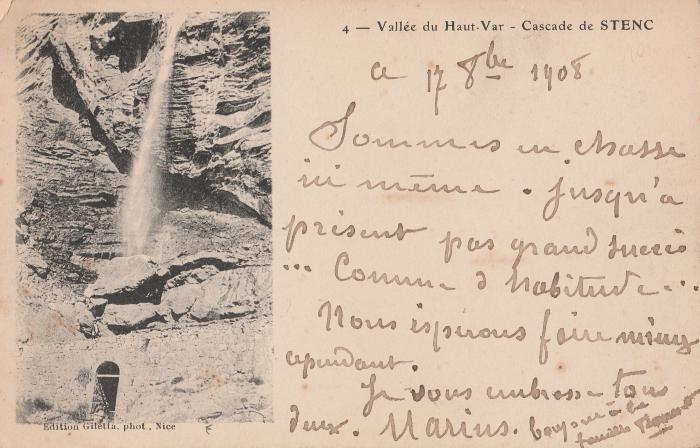 4 — Vallée du Haut-Var - Cascade de STENC
ce 17 8bre 1908
Sommes en chasse
ici même. Jusqu'à
présent pas grand succès
... Comme d'habitude...
Nous espérons faire mieux
cependant.
Je vous embrasse tous
deux. Marius. bonjour à la
famille
Edition Giletta, phot., Nice